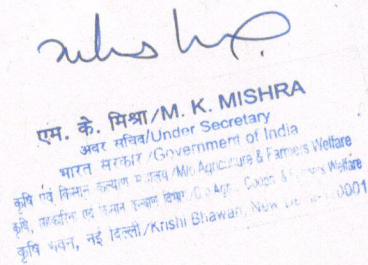 एम. के. मिश्रा/M. K. MISHRA
अवर सचिव/Under Secretary
भारत सरकार/Government of India
कृषि एवं किसान कल्याण मंत्रालय/M/o Agriculture & Farmers Welfare
कृषि, एवं किसान कल्याण विभाग/D/o Agri., Coopn & Farmers Welfare
कृषि भवन, नई दिल्ली/Krishi Bhawan, New